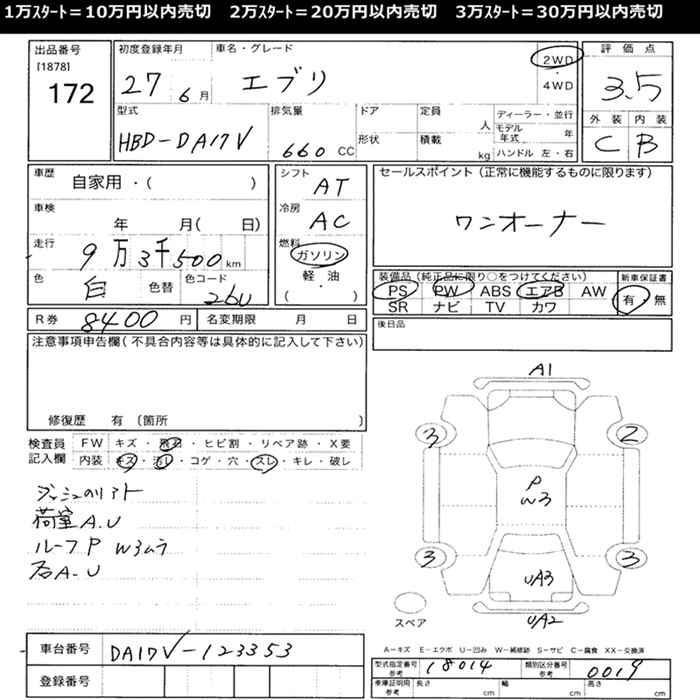 1万ｽﾀｰﾄ＝10万円以内売切　2万ｽﾀｰﾄ＝20万円以内売切　3万ｽﾀｰﾄ＝30万円以内売切
出品番号
[1878]
172
初度登録年月
27 6月
車名・グレード
エブリ
2WD
・
4WD
評価点
3.5
外装 内装
C B
型式
HBD-DA17V
排気量
660 CC
ドア
形状
定員
人
積載
kg
ディーラー・並行
モデル年式 年
ハンドル 左・右
車歴
自家用・( )
車検
年 月( 日)
走行
9万3千500km
色
白
色替
色コード
26U
シフト
AT
冷房
AC
燃料
ガソリン
軽・油
( )
セールスポイント（正常に機能するものに限ります）
ワンオーナー
装備品（純正品に限り○をつけてください）
PS PW ABS エアB AW
SR ナビ TV カワ
新車保証書
有 無
後日品
R券 8400 円
名変期限 月 日
注意事項申告欄（不具合内容等は具体的に記入して下さい）
修復歴 有〔箇所 〕
検査員記入欄
FW キズ・飛石・ヒビ割・リペア跡・X要
内装 キズ・汚レ・コゲ・穴・スレ・キレ・破レ
荷室A.U
ルーフP W3ムラ
石A.U
A1
3 2
P
W3
3 3
UA3
UA2
スペア
A－キズ E－エクボ U－凹み W－補修跡 S－サビ C－腐食 XX－交換済
車台番号 DA17V-123353
登録番号
型式指定番号 参考 18014
類別区分番号 参考 0019
車庫証明用 参考 長さ cm 幅 cm 高さ cm